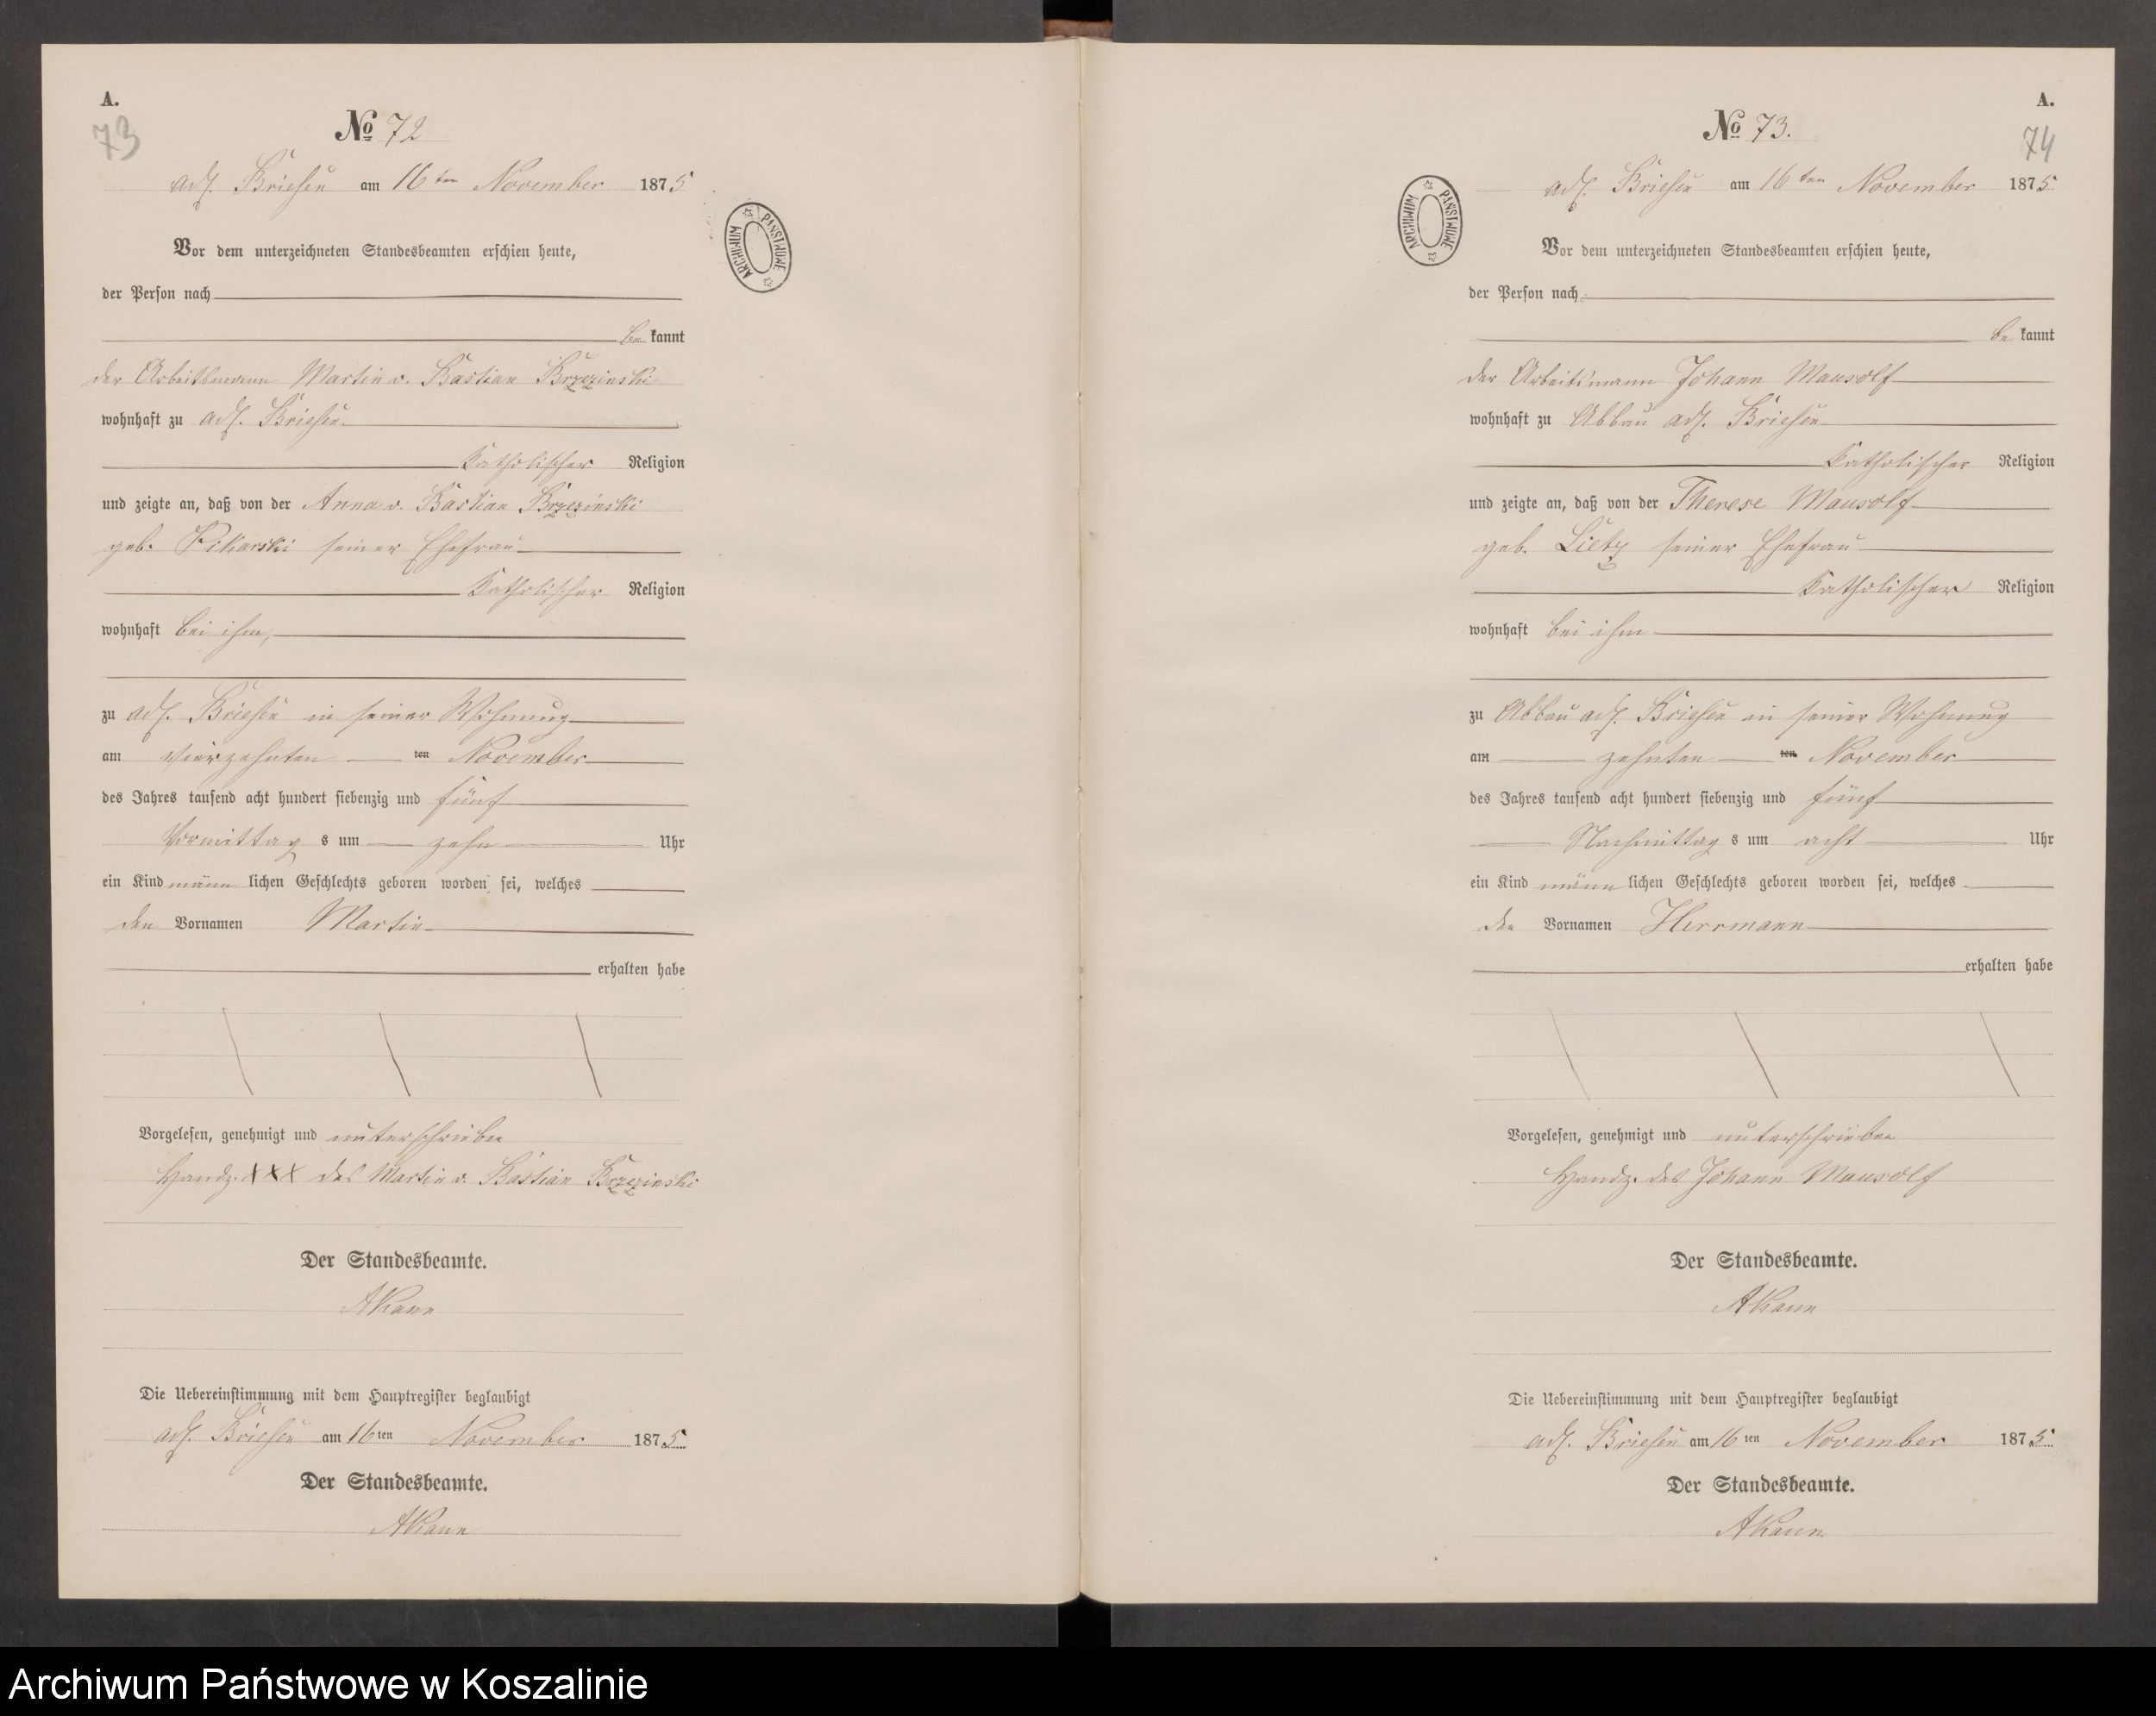 A.
73
No 72
adl. Briesen am 16ten November 1875
ARCHIWUM PAŃSTWOWE
Vor dem unterzeichneten Standesbeamten erschien heute,
der Person nach
be kannt
der Arbeitsmann Martin v. Bastian Brzezinski
wohnhaft zu adl. Briesen
Katholischer Religion
und zeigte an, daß von der Anna v. Bastian Brzezinski
geb. seiner Ehefrau
Katholischer Religion
wohnhaft bei ihm,
zu adl. Briesen in seiner Wohnung
am vierzehnten ten November
des Jahres tausend acht hundert siebenzig und fünf
Vormittag s um zehn Uhr
ein Kind männ lichen Geschlechts geboren worden sei, welches
den Vornamen Martin
erhalten habe
Vorgelesen, genehmigt und unterschrieben
Handz. XXX des Martin v. Bastian Brzezinski
Der Standesbeamte.
Die Uebereinstimmung mit dem Hauptregister beglaubigt
adl. Briesen am 16ten November 1875.
Der Standesbeamte.
A.
74
No 73.
adl. Briesen am 16ten November 1875.
ARCHIWUM PAŃSTWOWE
Vor dem unterzeichneten Standesbeamten erschien heute,
der Person nach
be kannt
der Arbeitsmann Johann Mausolf
wohnhaft zu Abbau adl. Briesen
Katholischer Religion
und zeigte an, daß von der Therese Mausolf
geb. Lietz seiner Ehefrau
Katholischer Religion
wohnhaft bei ihm
zu Abbau adl. Briesen in seiner Wohnung
am zehnten ten November
des Jahres tausend acht hundert siebenzig und fünf
Nachmittag s um acht Uhr
ein Kind männ lichen Geschlechts geboren worden sei, welches
den Vornamen Herrmann
erhalten habe
Vorgelesen, genehmigt und unterschrieben
Handz. des Johann Mausolf
Der Standesbeamte.
Die Uebereinstimmung mit dem Hauptregister beglaubigt
adl. Briesen am 16ten November 1875.
Der Standesbeamte.
Archiwum Państwowe w Koszalinie